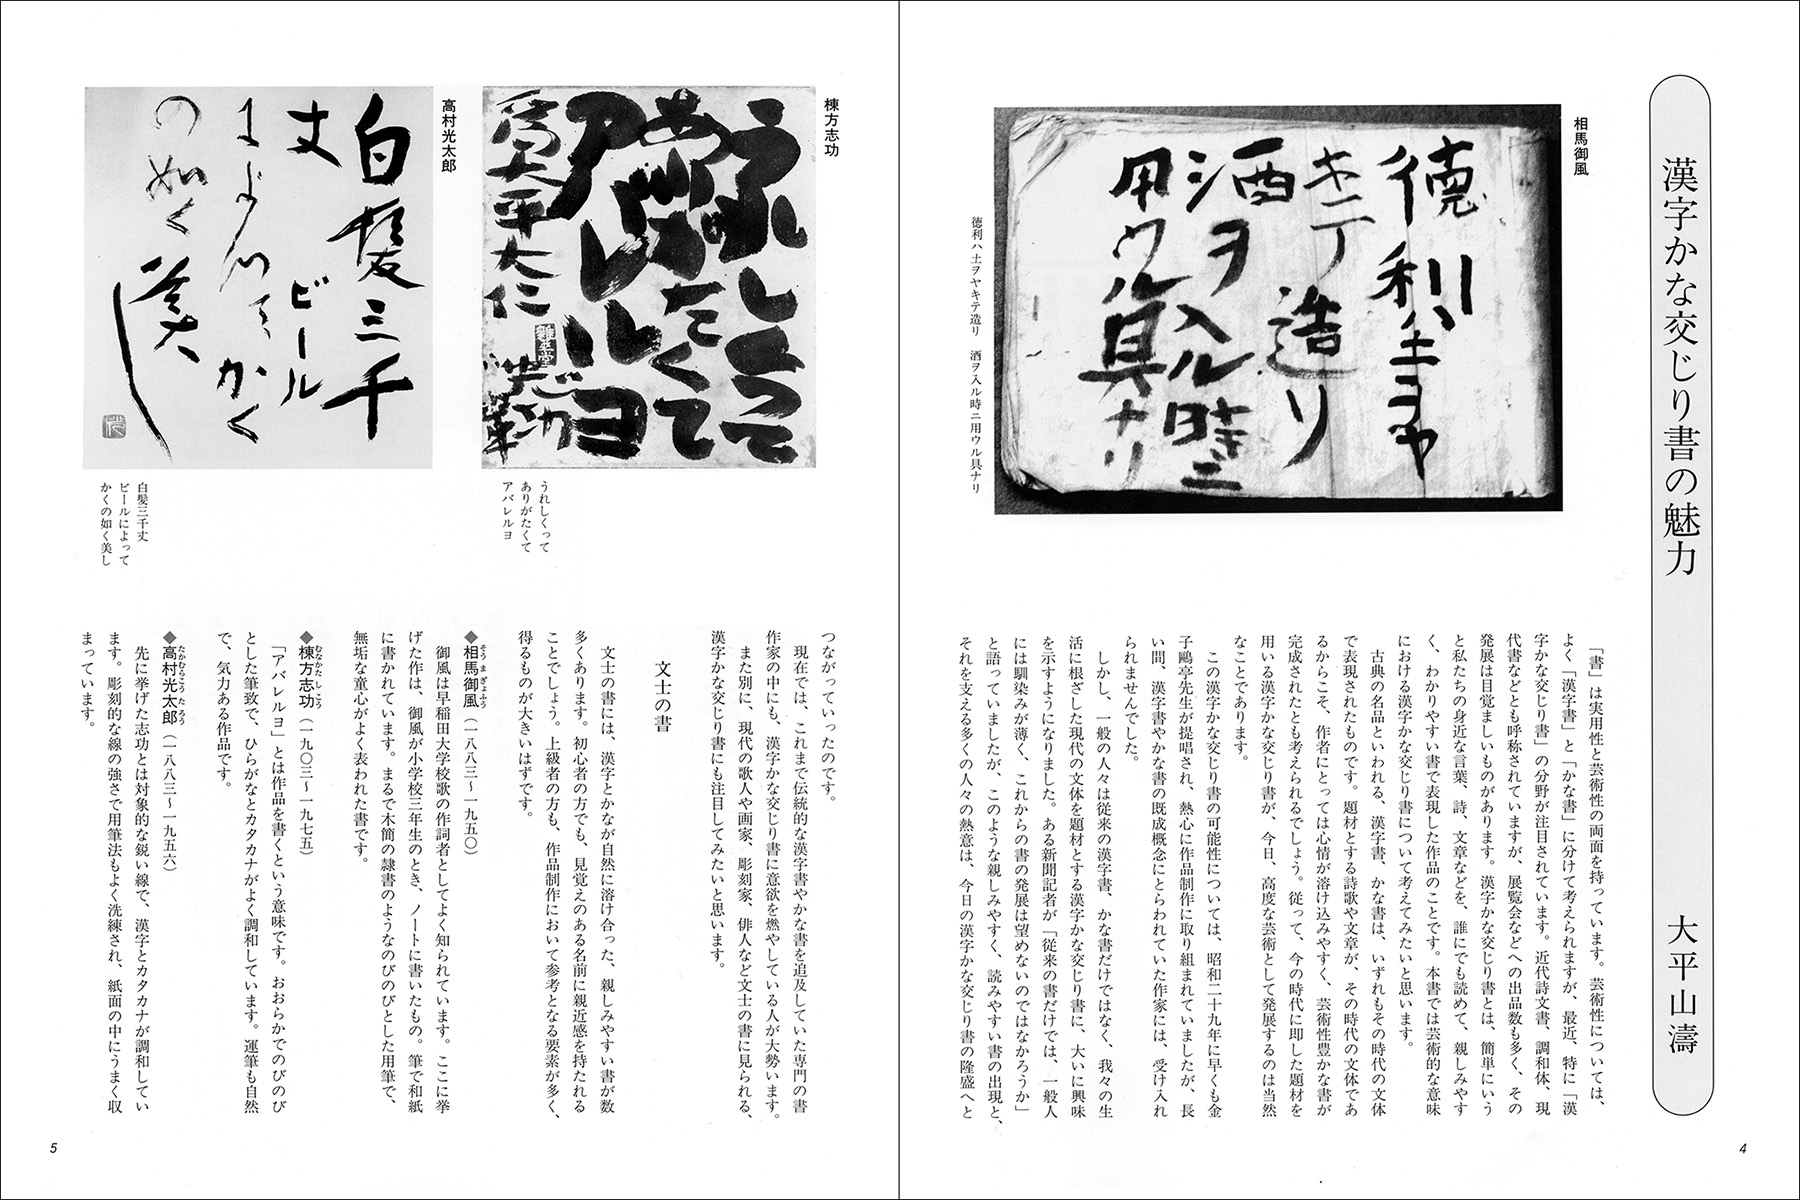 漢字かな交じり書の魅力
大平山濤
相馬御風
徳利ハ土ヲヤ
キテ造リ
酒ヲ入ル時ニ
用ウル具ナリ
徳利ハ土ヲヤキテ造リ 酒ヲ入ル時ニ用ウル具ナリ
「書」は実用性と芸術性の両面を持っています。芸術性については、
よく「漢字書」と「かな書」に分けて考えられますが、最近、特に「漢
字かな交じり書」の分野が注目されています。近代詩文書、調和体、現
代書などとも呼称されていますが、展覧会などへの出品数も多く、その
発展は目覚ましいものがあります。漢字かな交じり書とは、簡単にいう
と私たちの身近な言葉、詩、文章などを、誰にでも読めて、親しみやす
く、わかりやすい書で表現した作品のことです。本書では芸術的な意味
における漢字かな交じり書について考えてみたいと思います。
古典の名品といわれる、漢字書、かな書は、いずれもその時代の文体
で表現されたものです。題材とする詩歌や文章が、その時代の文体であ
るからこそ、作者にとっては心情が溶け込みやすく、芸術性豊かな書が
完成されたとも考えられるでしょう。従って、今の時代に即した題材を
用いる漢字かな交じり書が、今日、高度な芸術として発展するのは当然
なことであります。
この漢字かな交じり書の可能性については、昭和二十九年に早くも金
子鷗亭先生が提唱され、熱心に作品制作に取り組まれていましたが、長
い間、漢字書やかな書の既成概念にとらわれていた作家には、受け入れ
られませんでした。
しかし、一般の人々は従来の漢字書、かな書だけではなく、我々の生
活に根ざした現代の文体を題材とする漢字かな交じり書に、大いに興味
を示すようになりました。ある新聞記者が「従来の書だけでは、一般人
には馴染みが薄く、これからの書の発展は望めないのではなかろうか」
と語っていましたが、このような親しみやすく、読みやすい書の出現と、
それを支える多くの人々の熱意は、今日の漢字かな交じり書の隆盛へと
4
棟方志功
うれしくって
ありがたくて
アバレルヨ
うれしくって
ありがたくて
アバレルヨ
高村光太郎
白髪三千
丈 ビール
によつてかく
の如く美し
白髪三千丈
ビールによって
かくの如く美し
つながっていったのです。
現在では、これまで伝統的な漢字書やかな書を追及していた専門の書
作家の中にも、漢字かな交じり書に意欲を燃やしている人が大勢います。
また別に、現代の歌人や画家、彫刻家、俳人など文士の書に見られる、
漢字かな交じり書にも注目してみたいと思います。
文士の書
文士の書には、漢字とかなが自然に溶け合った、親しみやすい書が数
多くあります。初心者の方でも、見覚えのある名前に親近感を持たれる
ことでしょう。上級者の方も、作品制作において参考となる要素が多く、
得るものが大きいはずです。
◆相馬御風（一八八三～一九五〇）
そうまぎょふう
御風は早稲田大学校歌の作詞者としてよく知られています。ここに挙
げた作は、御風が小学校三年生のとき、ノートに書いたもの。筆で和紙
に書かれています。まるで木簡の隷書のようなのびのびとした用筆で、
無垢な童心がよく表われた書です。
◆棟方志功（一九〇三～一九七五）
むなかたしこう
「アバレルヨ」とは作品を書くという意味です。おおらかでのびのび
とした筆致で、ひらがなとカタカナがよく調和しています。運筆も自然
で、気力ある作品です。
◆高村光太郎（一八八三～一九五六）
たかむらこうたろう
先に挙げた志功とは対象的な鋭い線で、漢字とカタカナが調和してい
ます。彫刻的な線の強さで用筆法もよく洗練され、紙面の中にうまく収
まっています。
5